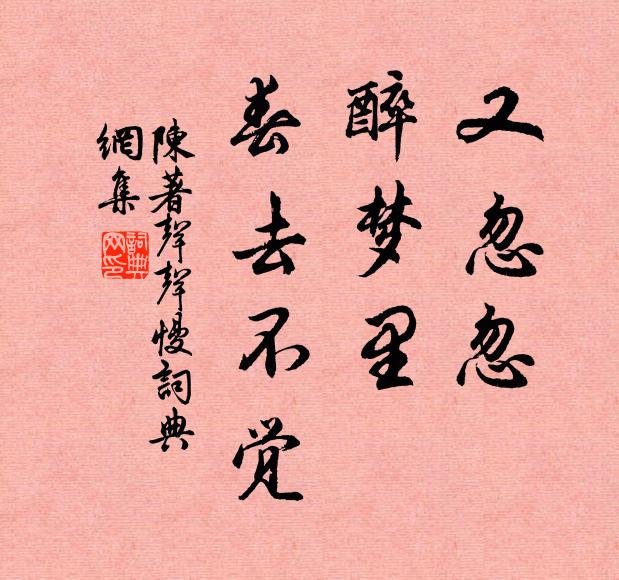 又忽忽
醉梦里
春去不觉
陳著聲聲慢詞典
網集
詞典
网印